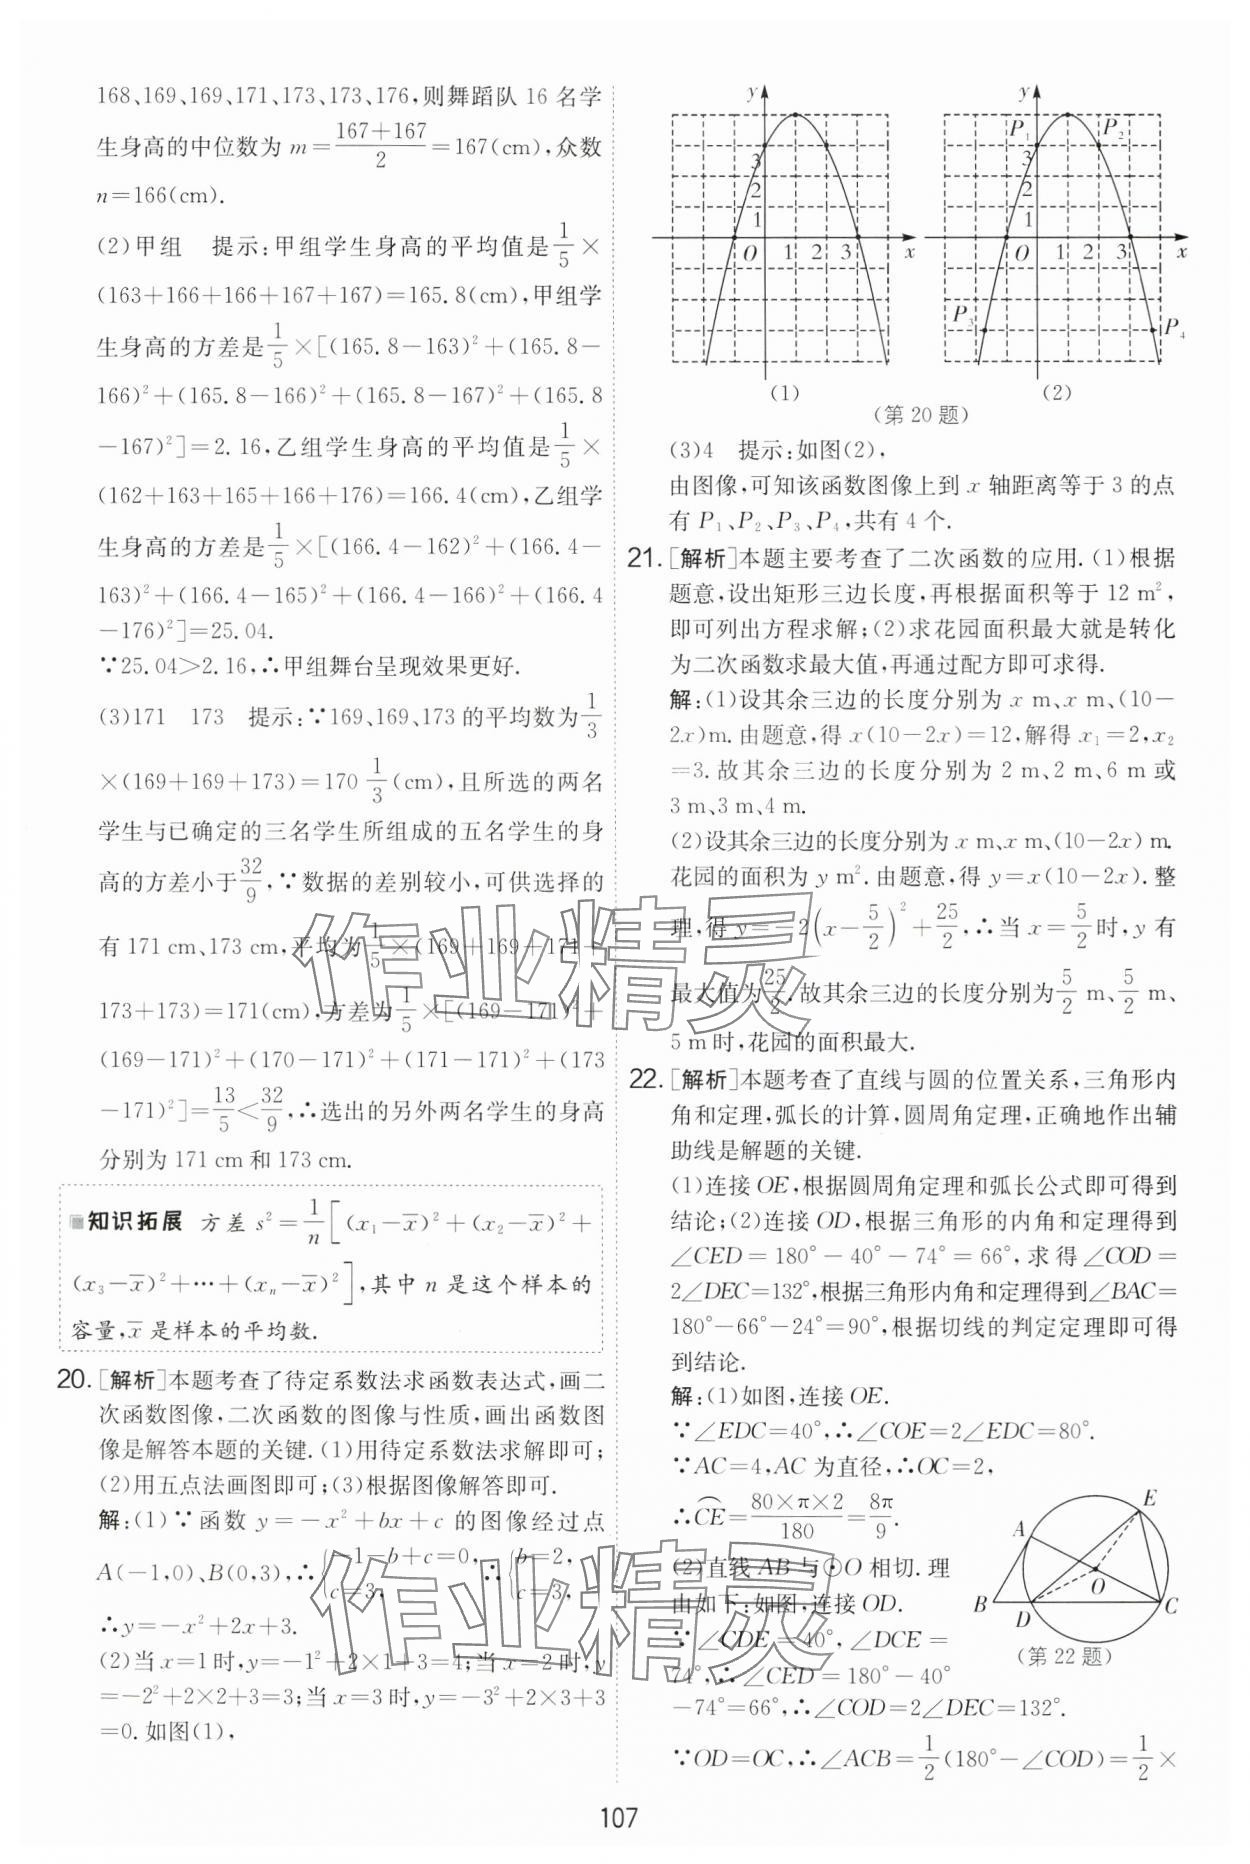 168、169、169、171、173、173、176,则舞蹈队 16 名学
生身高的中位数为 m=\frac{167+167}{2}=167(cm),众数
n=166(cm).
(2)甲组　提示:甲组学生身高的平均值是\frac{1}{5}×
(163+166+166+167+167)=165.8(cm),甲组学
生身高的方差是\frac{1}{5}×[(165.8-163)²+(165.8-
166)²+(165.8-166)²+(165.8-167)²+(165.8
-167)²]=2.16,乙组学生身高的平均值是\frac{1}{5}×
(162+163+165+166+176)=166.4(cm),乙组学
生身高的方差是\frac{1}{5}×[(166.4-162)²+(166.4-
163)²+(166.4-165)²+(166.4-166)²+(166.4
-176)²]=25.04.
∵25.04>2.16,∴甲组舞台呈现效果更好.
(3)171　173　提示:∵169、169、173 的平均数为\frac{1}{3}
×(169+169+173)=170\frac{1}{3}(cm),且所选的两名
学生与已确定的三名学生所组成的五名学生的身
高的方差小于\frac{32}{9},∵数据的差别较小,可供选择的
有 171 cm、173 cm,平均为\frac{1}{5}×(169+169+171+
173+173)=171(cm),方差为\frac{1}{5}×[(169-171)²+
(169-171)²+(170-171)²+(171-171)²+(173
-171)²]=\frac{13}{5}<\frac{32}{9},∴选出的另外两名学生的身高
分别为 171 cm 和 173 cm.
知识拓展 方差 s²=\frac{1}{n}[(x₁-x̄)²+(x₂-x̄)²+
(x₃-x̄)²+⋯+(xₙ-x̄)²],其中 n 是这个样本的
容量,x̄ 是样本的平均数.
20. [解析]本题考查了待定系数法求函数表达式,画二
次函数图像,二次函数的图像与性质,画出函数图
像是解答本题的关键.(1)用待定系数法求解即可;
(2)用五点法画图即可;(3)根据图像解答即可.
解:(1)∵函数 y=-x²+bx+c 的图像经过点
A(-1,0)、B(0,3),∴{-1-b+c=0, c=3,∴{b=2, c=3,
∴y=-x²+2x+3.
(2)当 x=1 时,y=-1²+2×1+3=4;当 x=2 时,y
=-2²+2×2+3=3;当 x=3 时,y=-3²+2×3+3
=0.如图(1),
y
3
2
1
O 1 2 3 x
(1)
y
P₁ P₂
3
2
1
O 1 2 3 x
P₃ P₄
(2)
(第 20 题)
(3)4　提示:如图(2),
由图像,可知该函数图像上到 x 轴距离等于 3 的点
有 P₁、P₂、P₃、P₄,共有 4 个.
21. [解析]本题主要考查了二次函数的应用.(1)根据
题意,设出矩形三边长度,再根据面积等于 12 m²,
即可列出方程求解;(2)求花园面积最大就是转化
为二次函数求最大值,再通过配方即可求得.
解:(1)设其余三边的长度分别为 x m、x m、(10-
2x)m.由题意,得 x(10-2x)=12,解得 x₁=2,x₂
=3.故其余三边的长度分别为 2 m、2 m、6 m 或
3 m、3 m、4 m.
(2)设其余三边的长度分别为 x m、x m、(10-2x) m.
花园的面积为 y m².由题意,得 y=x(10-2x).整
理,得 y=-2(x-\frac{5}{2})²+\frac{25}{2},∴当 x=\frac{5}{2}时,y 有
最大值为\frac{25}{2}.故其余三边的长度分别为\frac{5}{2} m、\frac{5}{2} m、
5 m时,花园的面积最大.
22. [解析]本题考查了直线与圆的位置关系,三角形内
角和定理,弧长的计算,圆周角定理,正确地作出辅
助线是解题的关键.
(1)连接 OE,根据圆周角定理和弧长公式即可得到
结论;(2)连接 OD,根据三角形的内角和定理得到
∠CED=180°-40°-74°=66°,求得∠COD=
2∠DEC=132°,根据三角形内角和定理得到∠BAC=
180°-66°-24°=90°,根据切线的判定定理即可得
到结论.
解:(1)如图,连接 OE.
∵∠EDC=40°,∴∠COE=2∠EDC=80°.
∵AC=4,AC 为直径,∴OC=2,
∴\overset{⌒}{CE}=\frac{80×π×2}{180}=\frac{8π}{9}.
(2)直线 AB 与⊙O 相切.理
由如下:如图,连接 OD.
∵∠CDE=40°,∠DCE=
74°,∴∠CED=180°-40°
-74°=66°,∴∠COD=2∠DEC=132°.
∵OD=OC,∴∠ACB=\frac{1}{2}(180°-∠COD)=\frac{1}{2}×
E
A
O
B D C
(第 22 题)
作业精灵
作业精灵
107